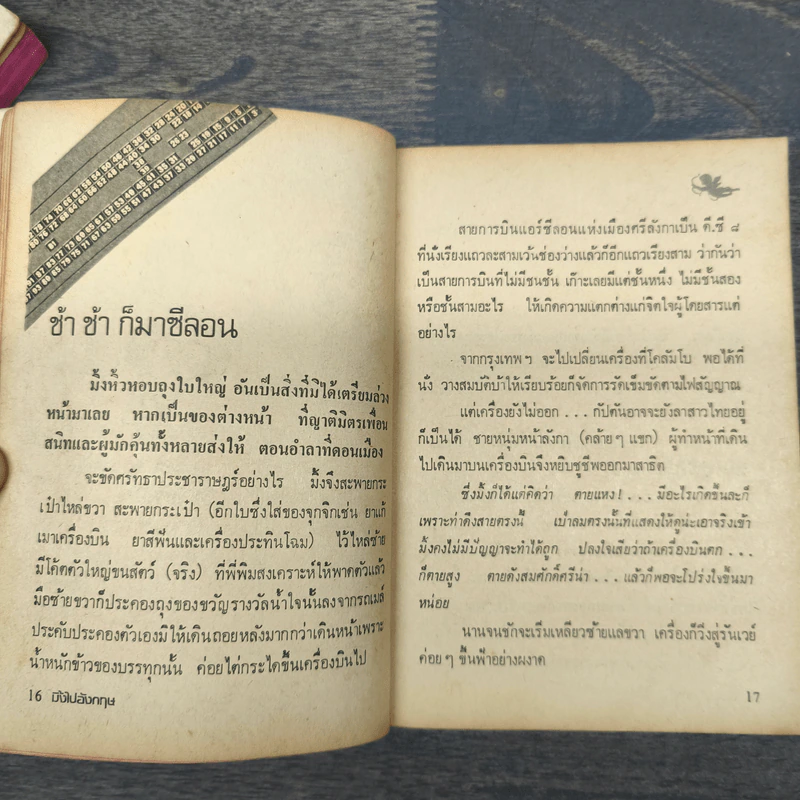 ช้า ช้า ก็มาซีลอน
มิ้งหิ้วหอบถุงใบใหญ่ อันเป็นสิ่งที่มิได้เตรียมล่วง
หน้ามาเลย หากเป็นของต่างหน้า ที่ญาติมิตรเพื่อน
สนิทและผู้มักคุ้นทั้งหลายส่งให้ ตอนอำลาที่ดอนเมือง
จะขัดศรัทธาประชาราษฎร์อย่างไร มิ้งจึงสะพายกระ
เป๋าไหล่ขวา สะพายกระเป๋า (อีกใบซึ่งใส่ของจุกจิกเช่น ยาแก้
เมาเครื่องบิน ยาสีฟันและเครื่องประทินโฉม) ไว้ไหล่ซ้าย
มีโค้ตตัวใหญ่ขนสัตว์ (จริง) ที่พี่พิมสงเคราะห์ให้พาดตัวแล้ว
มือซ้ายขวาก็ประคองถุงของขวัญรางวัลน้ำใจนั้นลงจากรถเมล์
ประคับประคองตัวเองมิให้เดินถอยหลังมากกว่าเดินหน้าเพราะ
น้ำหนักข้าวของบรรทุกนั้น ค่อยไต่กระไดขึ้นเครื่องบินไป
16 มิ้งไปอังกฤษ
สายการบินแอร์ซีลอนแห่งเมืองศรีลังกาเป็น ดี.ซี ๘
ที่นั่งเรียงแถวละสามเว้นช่องว่างแล้วก็อีกแถวเรียงสาม ว่ากันว่า
เป็นสายการบินที่ไม่มีชนชั้น เก๊าะเลยมีแต่ชั้นหนึ่ง ไม่มีชั้นสอง
หรือชั้นสามอะไร ให้เกิดความแตกต่างแก่จิตใจผู้โดยสารแต่
อย่างไร
จากกรุงเทพฯ จะไปเปลี่ยนเครื่องที่โคลัมโบ พอได้ที่
นั่ง วางสมบัติบ้าให้เรียบร้อยก็จัดการรัดเข็มขัดตามไฟสัญญาณ
แต่เครื่องยังไม่ออก . . . กัปตันอาจจะยังลาสาวไทยอยู่
ก็เป็นได้ ชายหนุ่มหน้าลังกา (คล้ายๆ แขก) ผู้ทำหน้าที่เดิน
ไปเดินมาบนเครื่องบินจึงหยิบชูชีพออกมาสาธิต
ซึ่งมิ้งก็ได้แต่คิดว่า ตายแหง! . . . มีอะไรเกิดขึ้นละก็
เพราะทำดึงสายตรงนี้ เป่าลมตรงนั้นที่แสดงให้ดูน่ะเอาจริงเข้า
มิ้งคงไม่มีปัญญาจะทำได้ถูก ปลงใจเสียว่าถ้าเครื่องบินตก . . .
ก็ตายสูง ตายดังสมศักดิ์ศรีน่า . . . แล้วก็พอจะโปร่งใจขึ้นมา
หน่อย
นานจนชักจะเริ่มเหลียวซ้ายแลขวา เครื่องก็วิ่งสู่รันเวย์
ค่อยๆ ขึ้นฟ้าอย่างผงาด
17